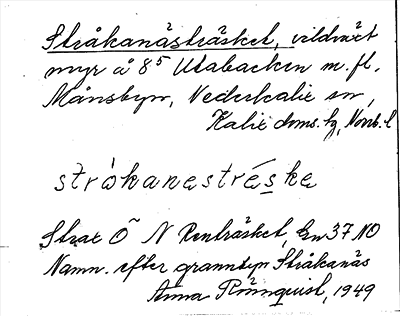 Stråkanästräsket, vildnät
myr å 8⁵ Utabacken m. fl.
Månsbyn, Nederkalix sn,
Kalix doms. hg, Norrb. l
strå̀kanestrɛ́ske
Strax Ö N Renträsket, Gn 37 NO
Namn. efter grannbyn Stråkanäs
Anna Rönnquist, 1949